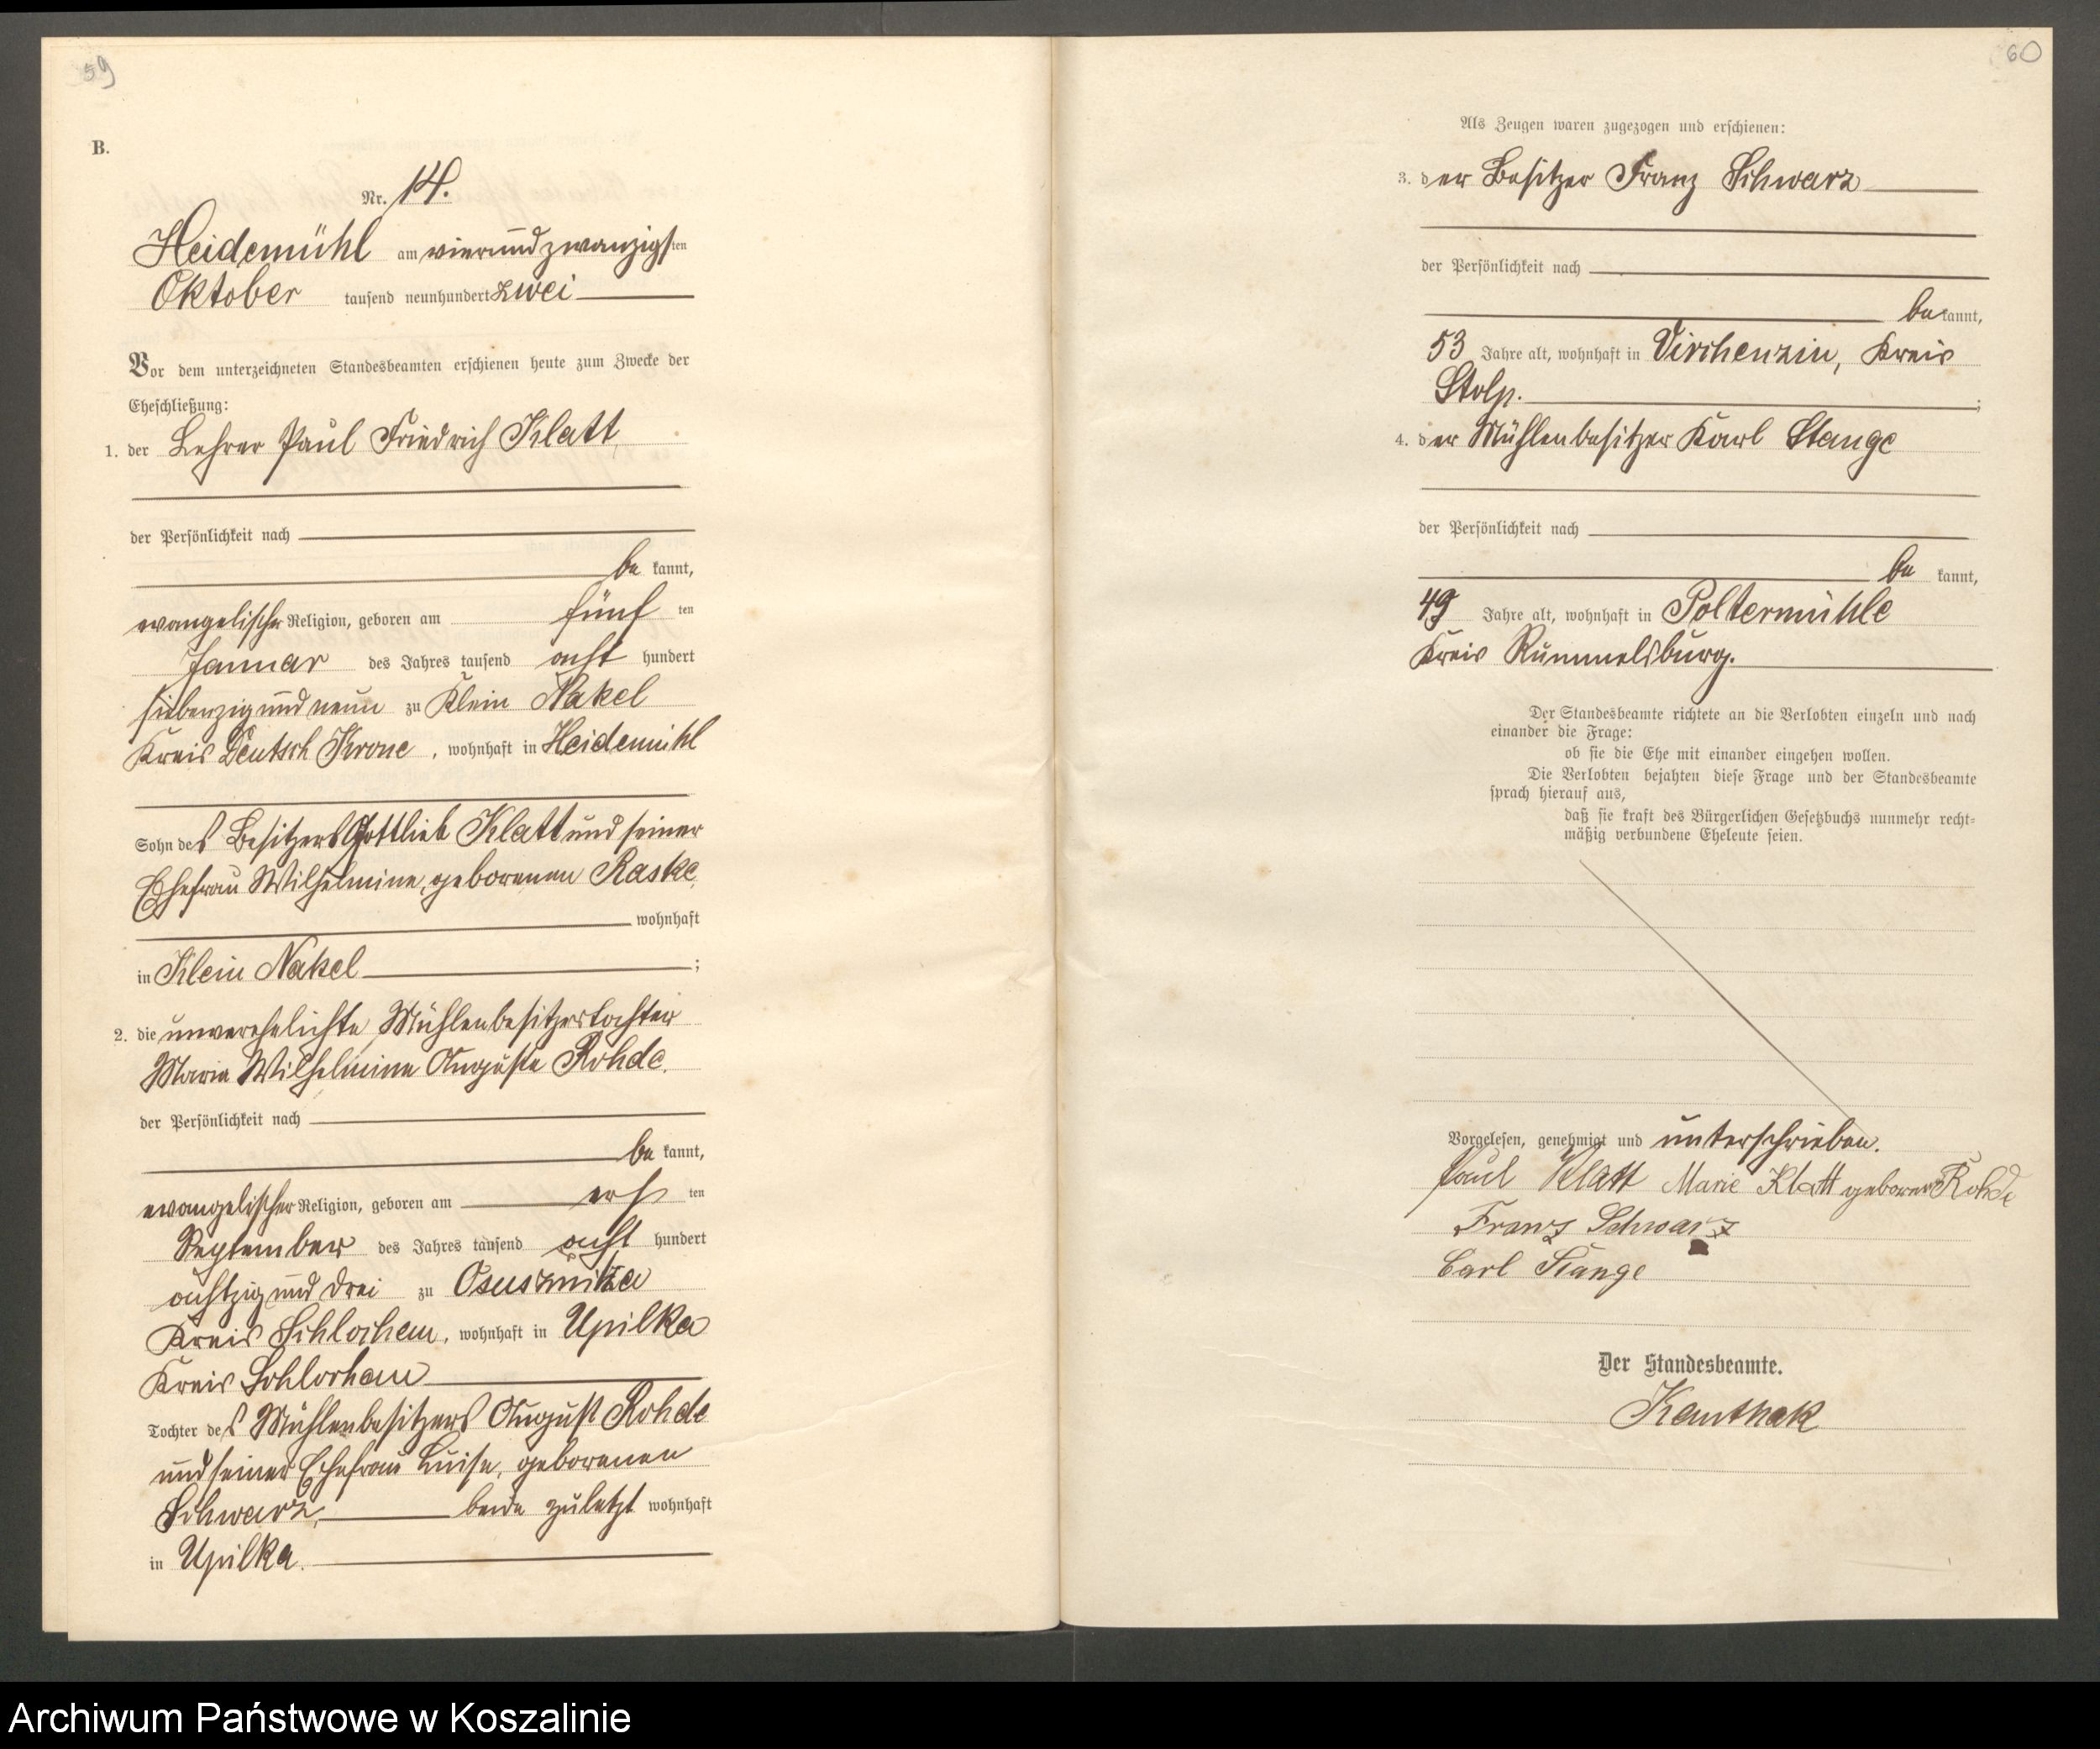 59
B.
Nr. 14.
Heidemühl am vierundzwanzigsten
Oktober tausend neunhundert zwei
Vor dem unterzeichneten Standesbeamten erschienen heute zum Zwecke der
Eheschließung:
1. der Lehrer Paul Friedrich Klatt,
der Persönlichkeit nach
be kannt,
evangelischer Religion, geboren am fünf ten
Januar des Jahres tausend acht hundert
siebenzig und neun zu Klein Nakel
Kreis Deutsch Krone, wohnhaft in Heidemühl
Sohn des Besitzers Gottlieb Klatt und seiner
Ehefrau Wilhelmine, geborenen Raske,
wohnhaft
in Klein Nakel ;
2. die unverehelichte Mühlenbesitzerstochter
Marie Wilhelmine Auguste Rohde,
der Persönlichkeit nach
be kannt,
evangelischer Religion, geboren am ers ten
September des Jahres tausend acht hundert
achtzig und drei zu Ossusznitza
Kreis Schlochau, wohnhaft in Upilka
Kreis Schlochau
Tochter des Mühlenbesitzers August Rohde
und seiner Ehefrau Luise, geborenen
Schwarz, beide zuletzt wohnhaft
in Upilka.
60
Als Zeugen waren zugezogen und erschienen:
3. der Besitzer Franz Schwarz
der Persönlichkeit nach
bekannt,
53 Jahre alt, wohnhaft in Virchenzin, Kreis
Stolp. ;
4. der Mühlenbesitzer Karl Stange
der Persönlichkeit nach
be kannt,
49 Jahre alt, wohnhaft in Poltermühle
Kreis Rummelsburg.
Der Standesbeamte richtete an die Verlobten einzeln und nach
einander die Frage:
ob sie die Ehe mit einander eingehen wollen.
Die Verlobten bejahten diese Frage und der Standesbeamte
sprach hierauf aus,
daß sie kraft des Bürgerlichen Gesetzbuchs nunmehr recht-
mäßig verbundene Eheleute seien.
Vorgelesen, genehmigt und unterschrieben.
Paul Klatt Marie Klatt geborene Rohde
Franz Schwarz
Carl Stange
Der Standesbeamte.
Kauthak
Archiwum Państwowe w Koszalinie